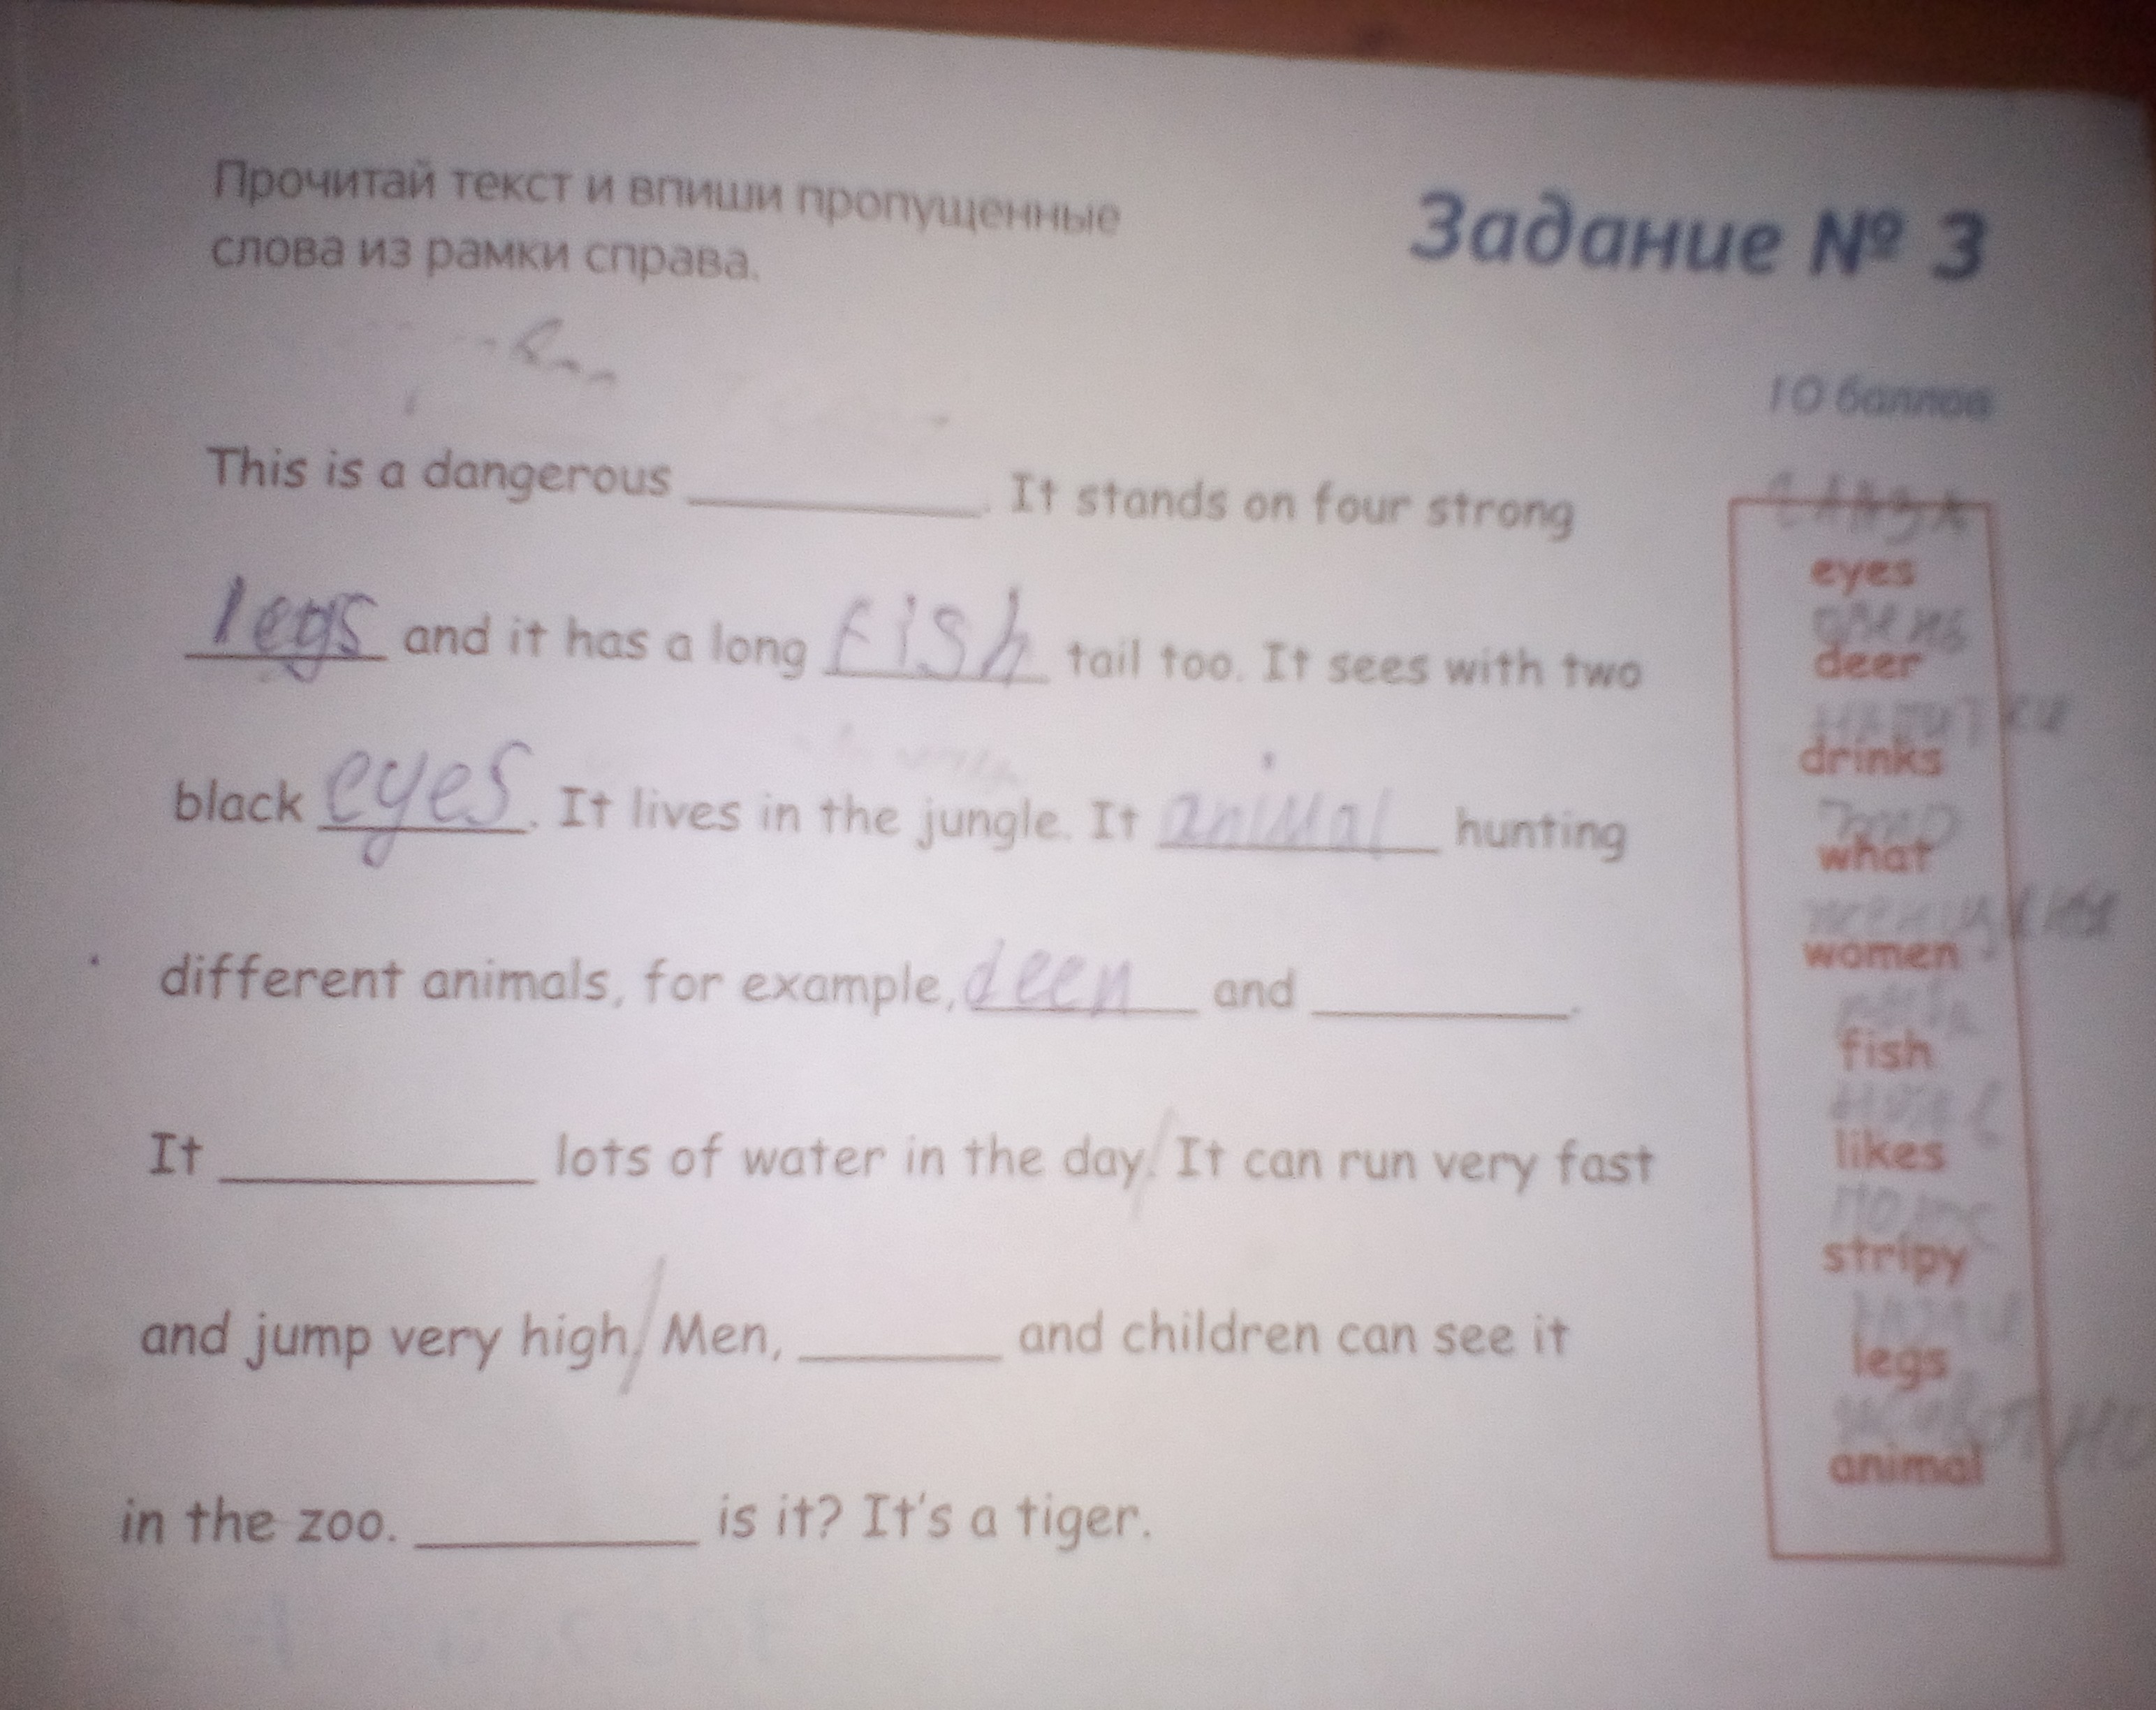 Прочитай текст и впиши пропущенные
слова из рамки справа.
Задание № 3
10 баллов
This is a dangerous __________. It stands on four strong
legs and it has a long fish tail too. It sees with two
black eyes. It lives in the jungle. It animal hunting
different animals, for example, deen and __________.
It __________ lots of water in the day. It can run very fast
and jump very high. Men, __________ and children can see it
in the zoo. __________ is it? It's a tiger.
eyes
deer
drinks
what
women
fish
likes
stripy
legs
animal